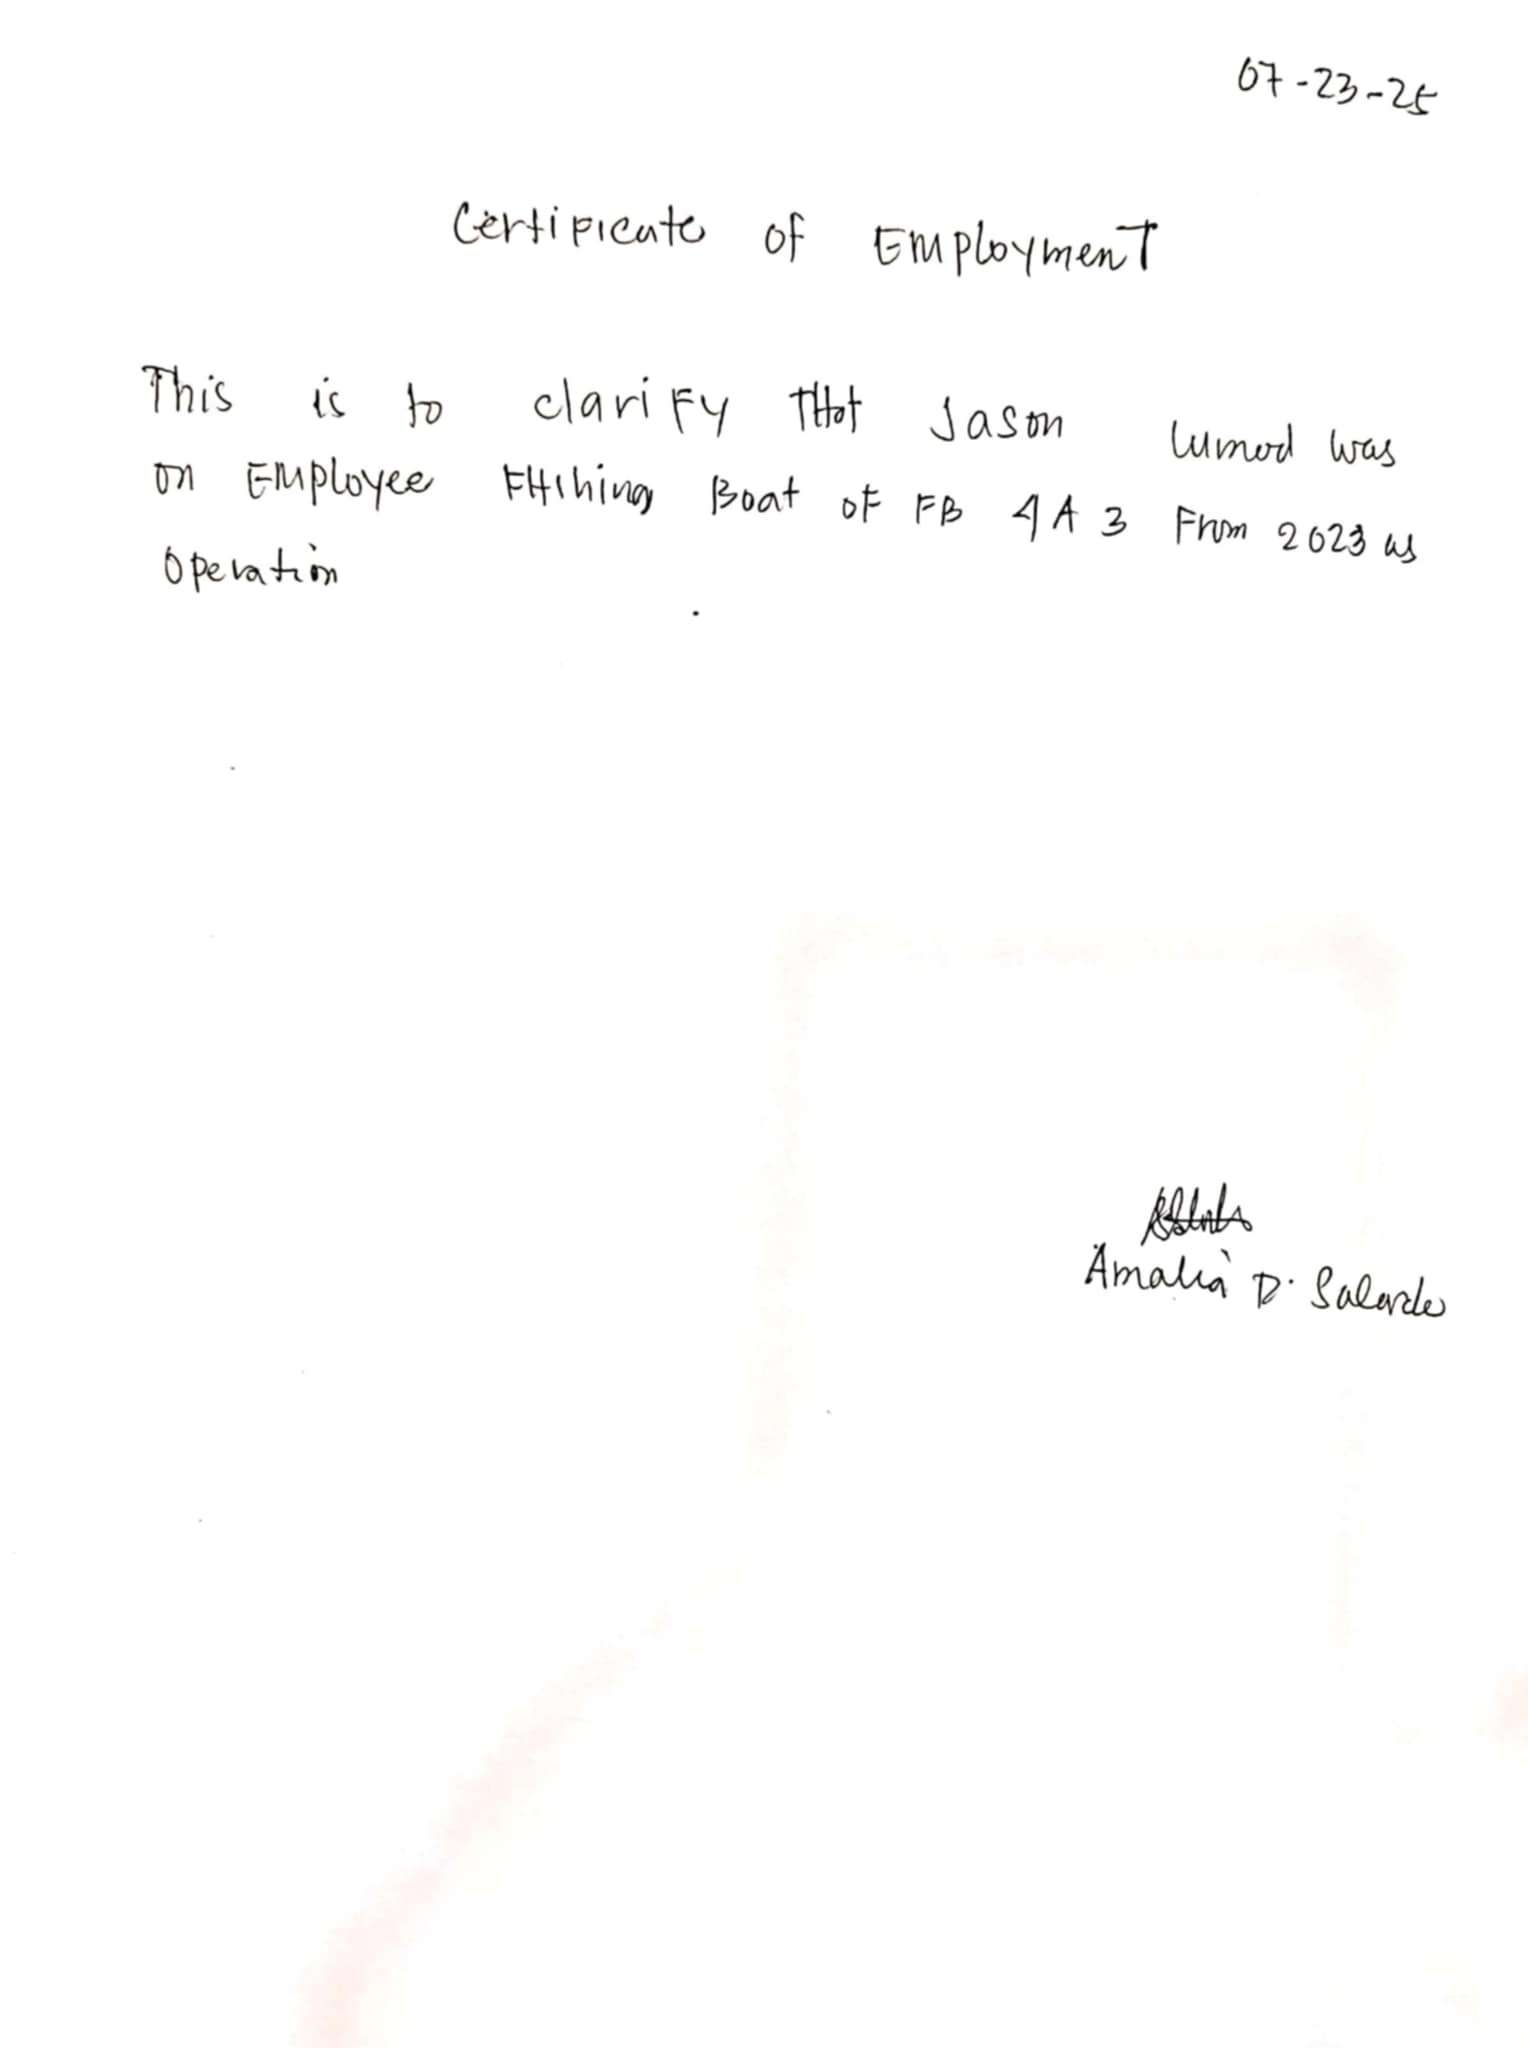 07-23-25
Certipicate of Employment
This is to clarify THat Jason lumod was
on Employee FHshing Boat of FB 4A3 From 2023 as
Operation
Amalia D. Salarde